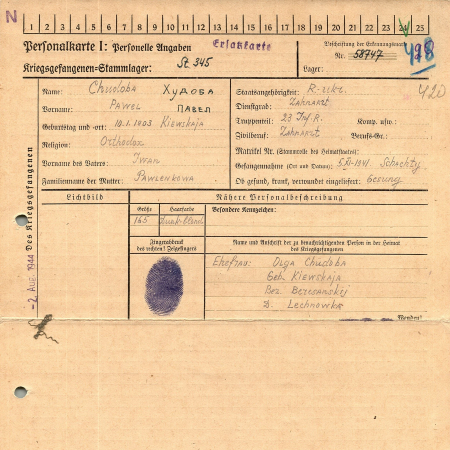 N
1 2 3 4 5 6 7 8 9 10 11 12 13 14 15 16 17 18 19 20 21 22 23 24 25
Personalkarte I: Personelle Angaben
Ersatzkarte
Beschriftung der Erkennungsmarke
Nr. 58747
Kriegsgefangenen-Stammlager: St. 345
Lager:
498
420
Des Kriegsgefangenen
-2. Aug. 1944
Name: Chudoba Худоба
Vorname: Pawel Павел
Geburtstag und -ort: 10.1.1903 Kiewskaja
Religion: Orthodox
Vorname des Vaters: Iwan
Familienname der Mutter: Pawlenkowa
Staatsangehörigkeit: R-ukr.
Dienstgrad: Zahnarzt
Truppenteil: 23 Inf. R. Komp. usw.:
Zivilberuf: Zahnarzt Berufs-Gr.:
Matrikel Nr. (Stammrolle des Heimatstaates):
Gefangennahme (Ort und Datum): Schachty
Ob gesund, krank, verwundet eingeliefert: Gesung
Lichtbild
Nähere Personalbeschreibung
Größe
Haarfarbe
Besondere Kennzeichen:
165
Dunk.-blond
Fingerabdruck
des rechten! Zeigefingers
Name und Anschrift der zu benachrichtigenden Person in der Heimat
des Kriegsgefangenen
Ehefrau: Olga Chudoba
Geb. Kiewskaja
Bez. Beresanskij
D. Lechnowka
Wenden!